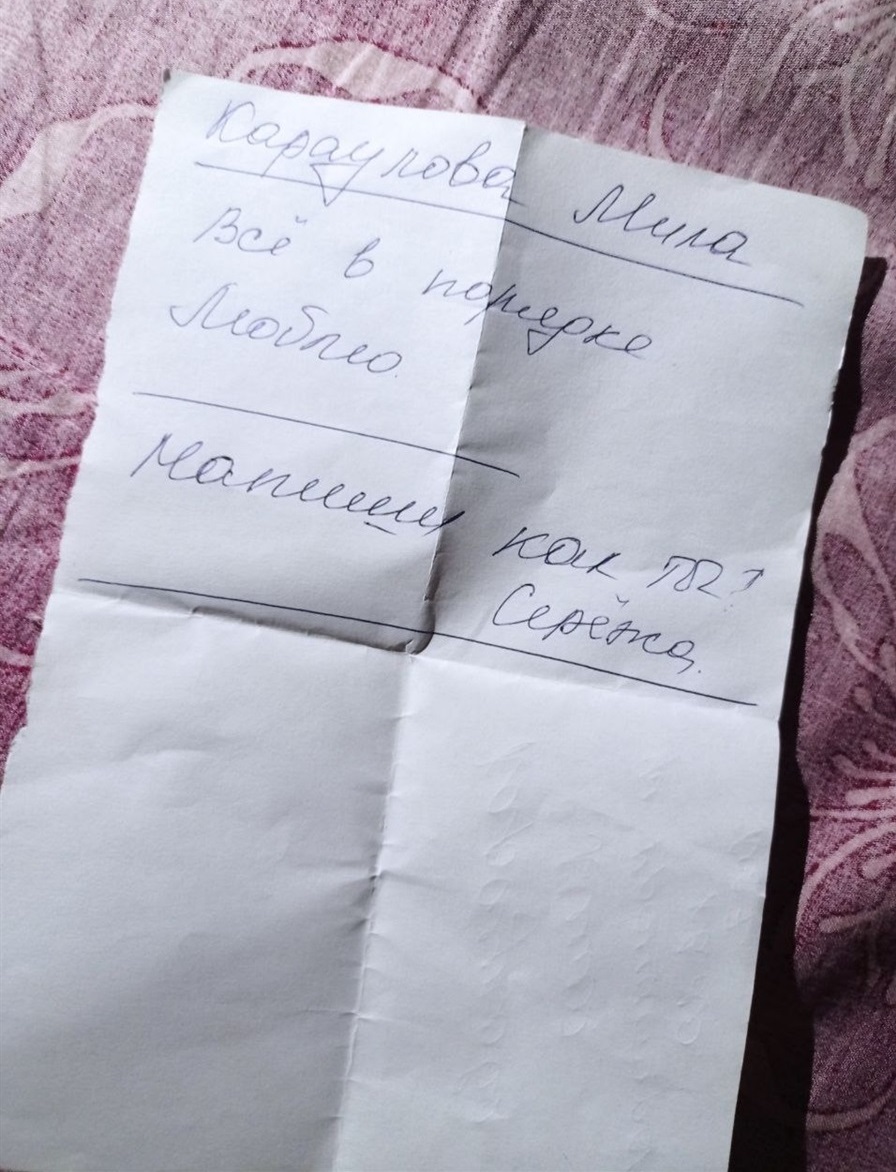 Караулова Мила
Всё в порядке
Люблю.
Напиши как ты?
Серёжа.